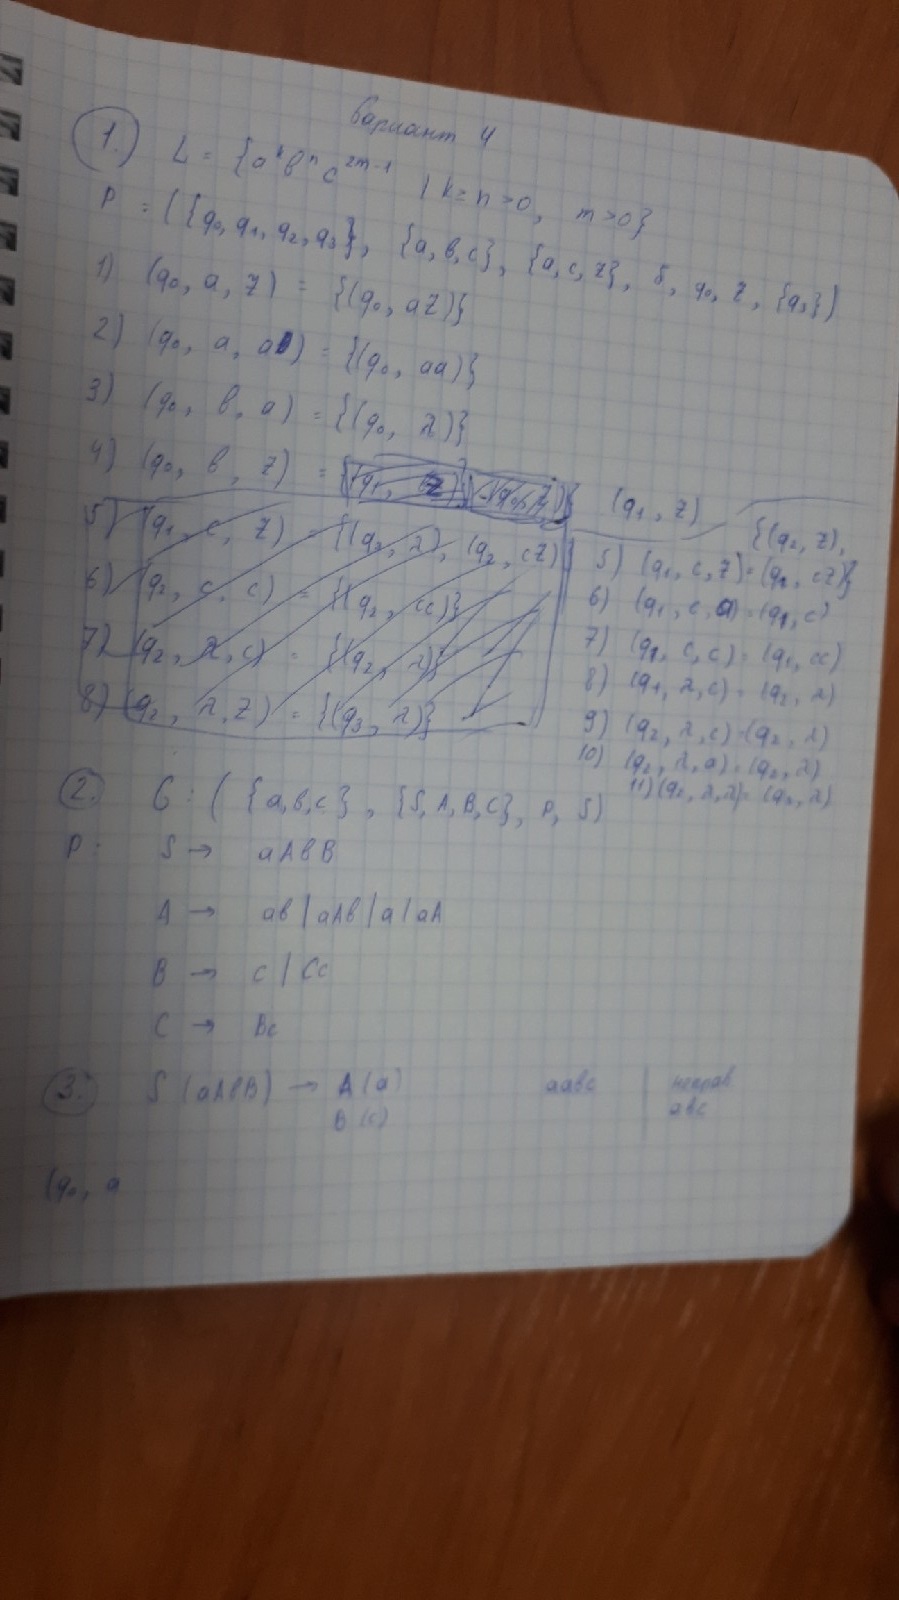 Вариант 4
1. L = {a^k b^n c^{2m-1} | k = n > 0, m > 0}
P = ({q₀, q₁, q₂, q₃}, {a, b, c}, {a, c, z}, δ, q₀, z, {q₃})
1) (q₀, a, z) = {(q₀, az)}
2) (q₀, a, a) = {(q₀, aa)}
3) (q₀, b, a) = {(q₀, λ)}
4) (q₀, b, z) = (q₁, z)
5) (q₁, c, z) = {(q₃, λ), (q₂, cz)}
6) (q₂, c, c) = {(q₂, cc)}
7) (q₂, λ, c) = {(q₂, λ)}
8) (q₂, λ, z) = {(q₃, λ)}
{(q₂, z),
5) (q₁, c, z) = (q₁, cz)}
6) (q₁, c, a) = (q₁, c)
7) (q₁, c, c) = (q₁, cc)
8) (q₁, λ, c) = (q₂, λ)
9) (q₂, λ, c) = (q₂, λ)
10) (q₂, λ, a) = (q₂, λ)
11) (q₂, λ, λ) = (q₂, λ)
2. G = ({a, b, c}, {S, A, B, C}, P, S)
P: S → aAbB
A → ab | aAb | a | aA
B → c | Cc
C → Bc
3. S (aAbB) → A (a)
B (c)
aabc
неправ
abc
(q₀, a